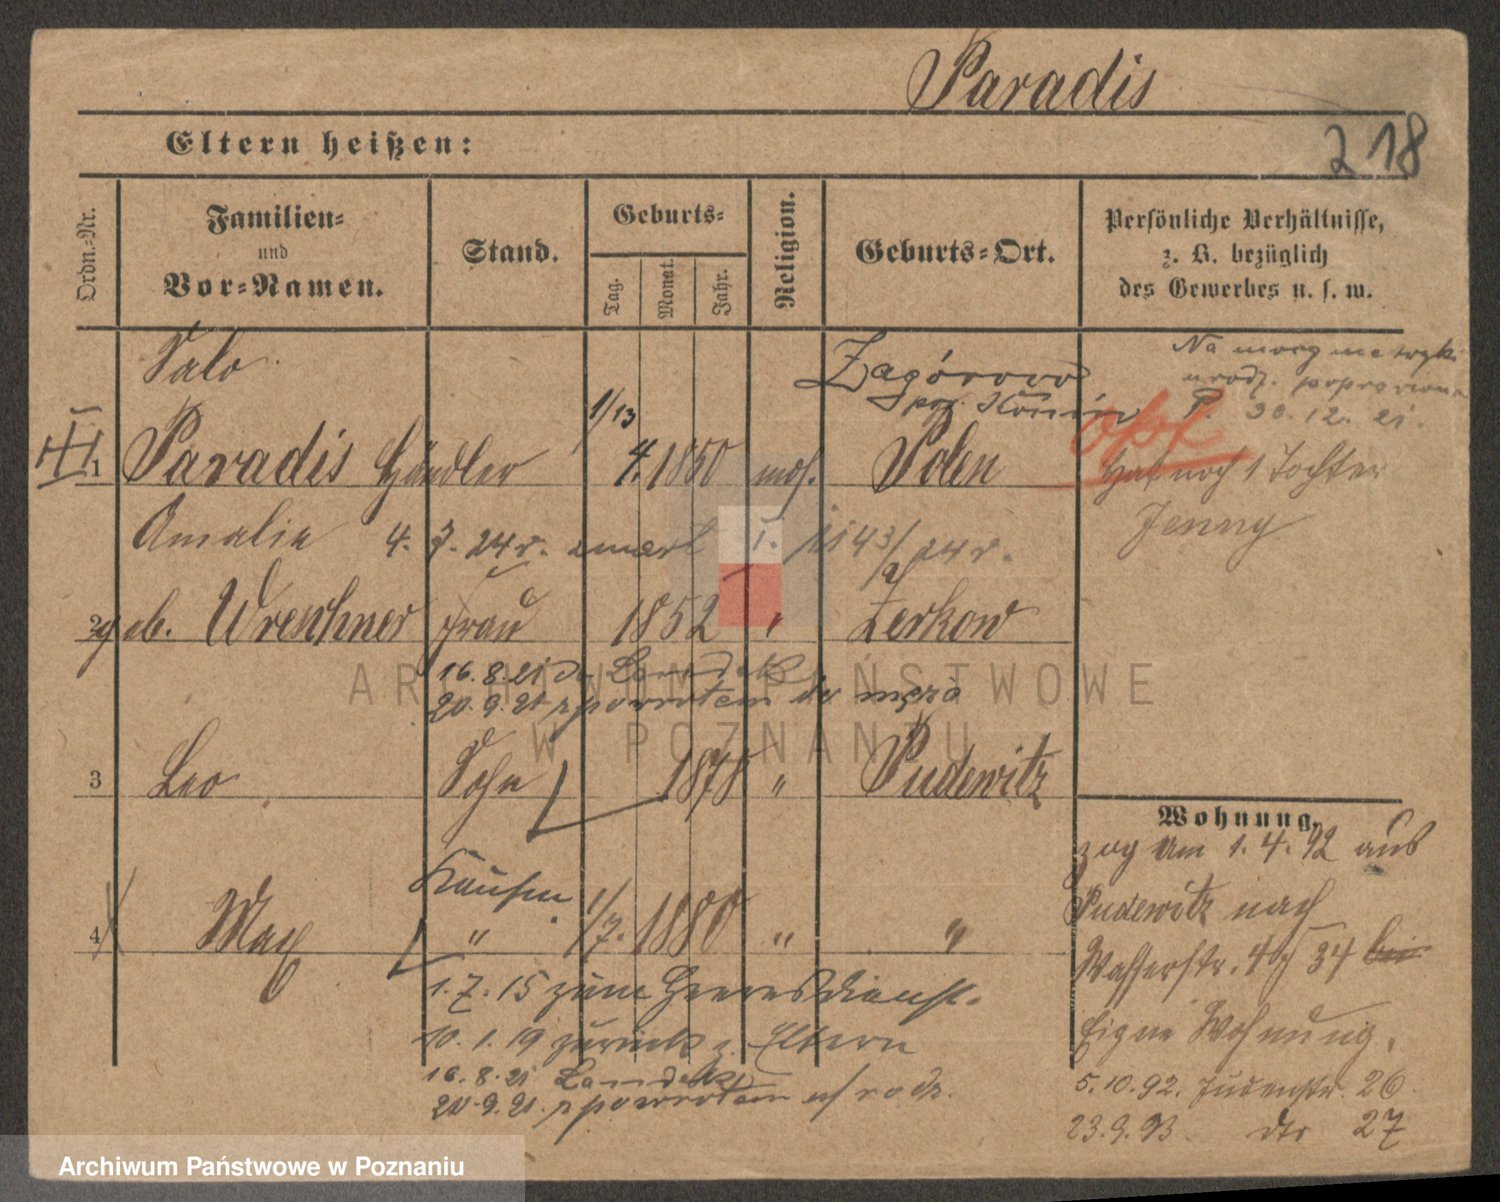 Paradis
218
Eltern heißen:
Ordn.-Nr.
Familien-
und
Vor-Namen.
Stand.
Geburts-
Tag.
Monat.
Jahr.
Religion.
Geburts-Ort.
Persönliche Verhältnisse,
z. B. bezüglich
des Gewerbes u. s. w.
Salo
Zagórowo
pow. Konin
Na mocy metryki
urodz. poprawiono
P. 30.12.21.
1/13
1 Paradis Händler 4. 1850 mos. Polen
opt
Hat noch 1 Tochter
Jenny
Amalie 4. 7. 24 r. zmarł 1143/24 r.
2 geb. Wreschner Frau 1852 " Zerkow
16.8.21 do Landek
20.9.21 spowrotem do męża
3 Leo Sohn 1878 " Pudewitz
Kaufm.
4 Max " 1/7. 1880 " "
1.7.15 zum Heeresdienst.
10.1.19 zurück z. Eltern
16.8.21 Landek
20.9.21. spowrotem rodz.
Wohnung.
zog am 1.4.92 aus
Pudewitz nach
Wasserstr. 34 bei
Eigne Wohnung.
5.10.92. Judenstr. 26.
23.9.93. dto 27
ARCHIWUM PAŃSTWOWE
W POZNANIU
Archiwum Państwowe w Poznaniu